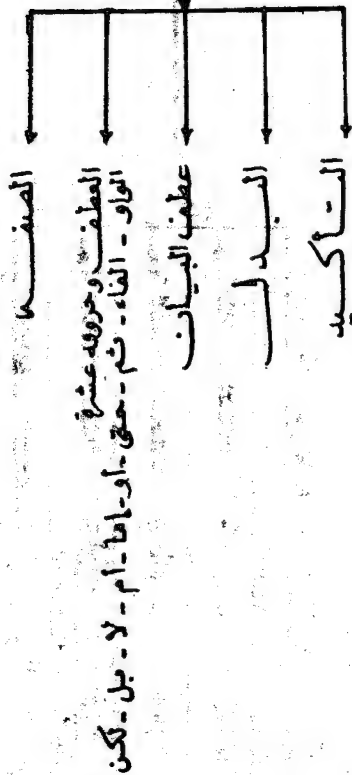 الصفة
العطف وحروفه عشرة
الواو - الفاء - ثم - حتى - أو - إما - أم - لا - بل - لكن
عطف البيان
البدل
التأكيد